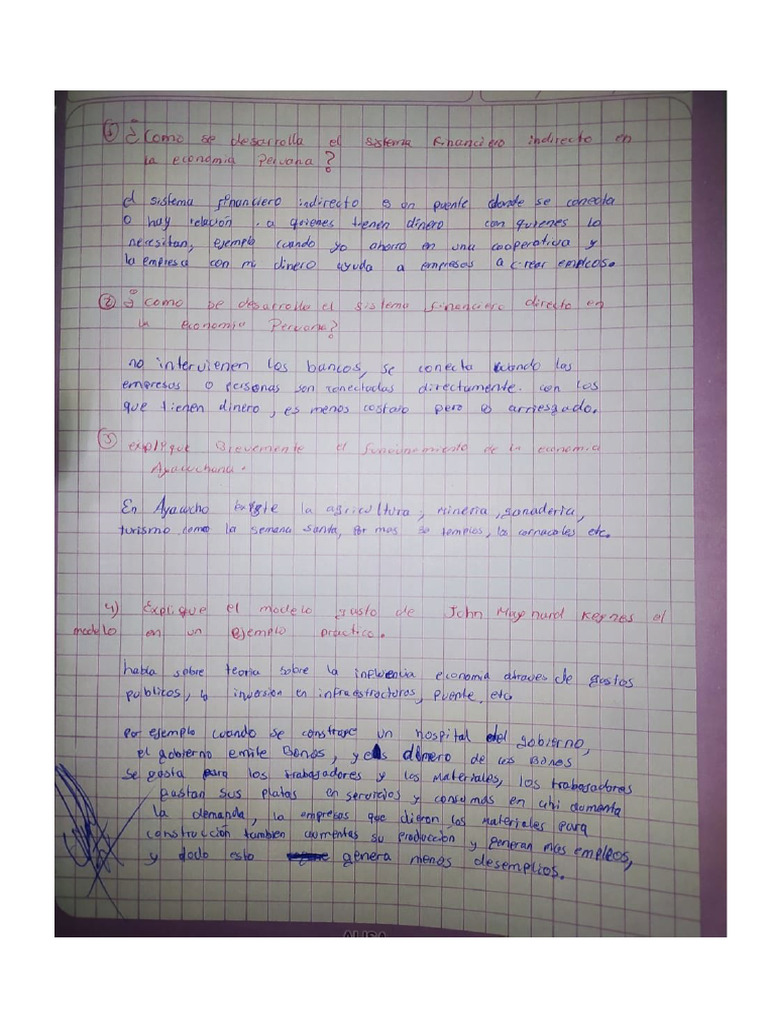 ① ¿Como se desarrolla el sistema financiero indirecto en
la economia Peruana?
el sistema financiero indirecto es un puente donde se conecta
o hay relación a quienes tienen dinero con quienes lo
necesitan, ejemplo cuando yo ahorro en una cooperativa y
la empresa con mi dinero ayuda a empresas a crear empleos.
② ¿como se desarrolla el sistema financiero directo en
la economia Peruana?
no intervienen los bancos, se conecta cuando las
empresas o personas son conectadas directamente con los
que tienen dinero, es menos costoso pero es arriesgado.
③ explique Brevemente el funcionamiento de la economia
Ayacuchana.
En Ayacucho existe la agricultura, mineria, ganaderia,
turismo como la semana santa, por mas 30 templos, los carnavales etc.
4) Explique el modelo gasto de John Maynard Keynes al
modelo en un ejemplo práctico.
habla sobre teoria sobre la influencia economia atraves de gastos
publicos, la inversion en infraestructuras, puente, etc
por ejemplo cuando se construye un hospital del gobierno,
el gobierno emite Bonos, y el dinero de los Bonos
se gasta para los trabajadores y los materiales, los trabajadores
gastan sus platas en servicios y consumas en ahi aumenta
la demanda, la empresas que dieron los materiales para
construcción tambien aumentas su producción y generan mas empleos,
y dodo esto genera menos desemplios.